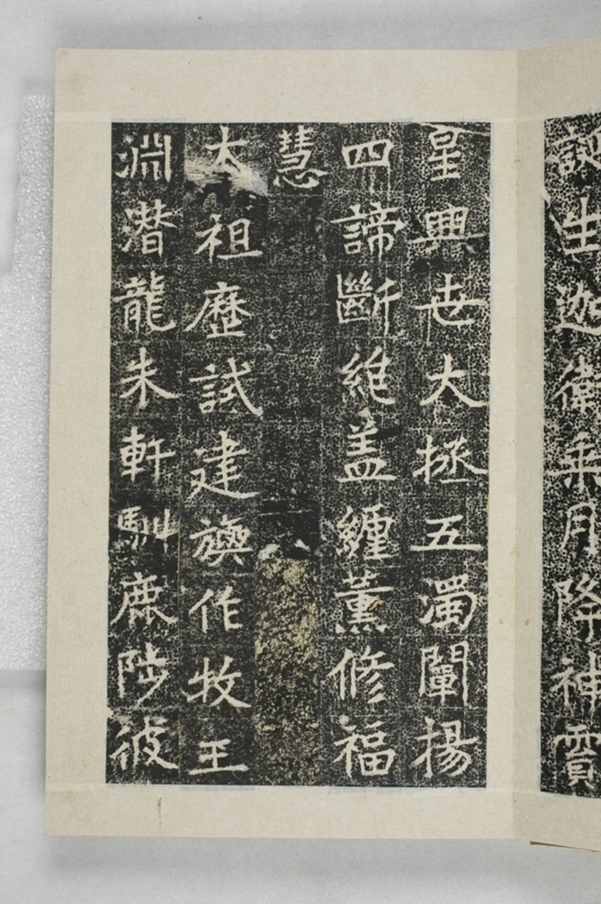 誕生迦衛乘月降神霣
星興世大拯五濁闡揚
四諦斷絶盖纏薰修福
慧
太祖歷試建旟作牧王
淵潜龍朱軒馴鹿陟彼